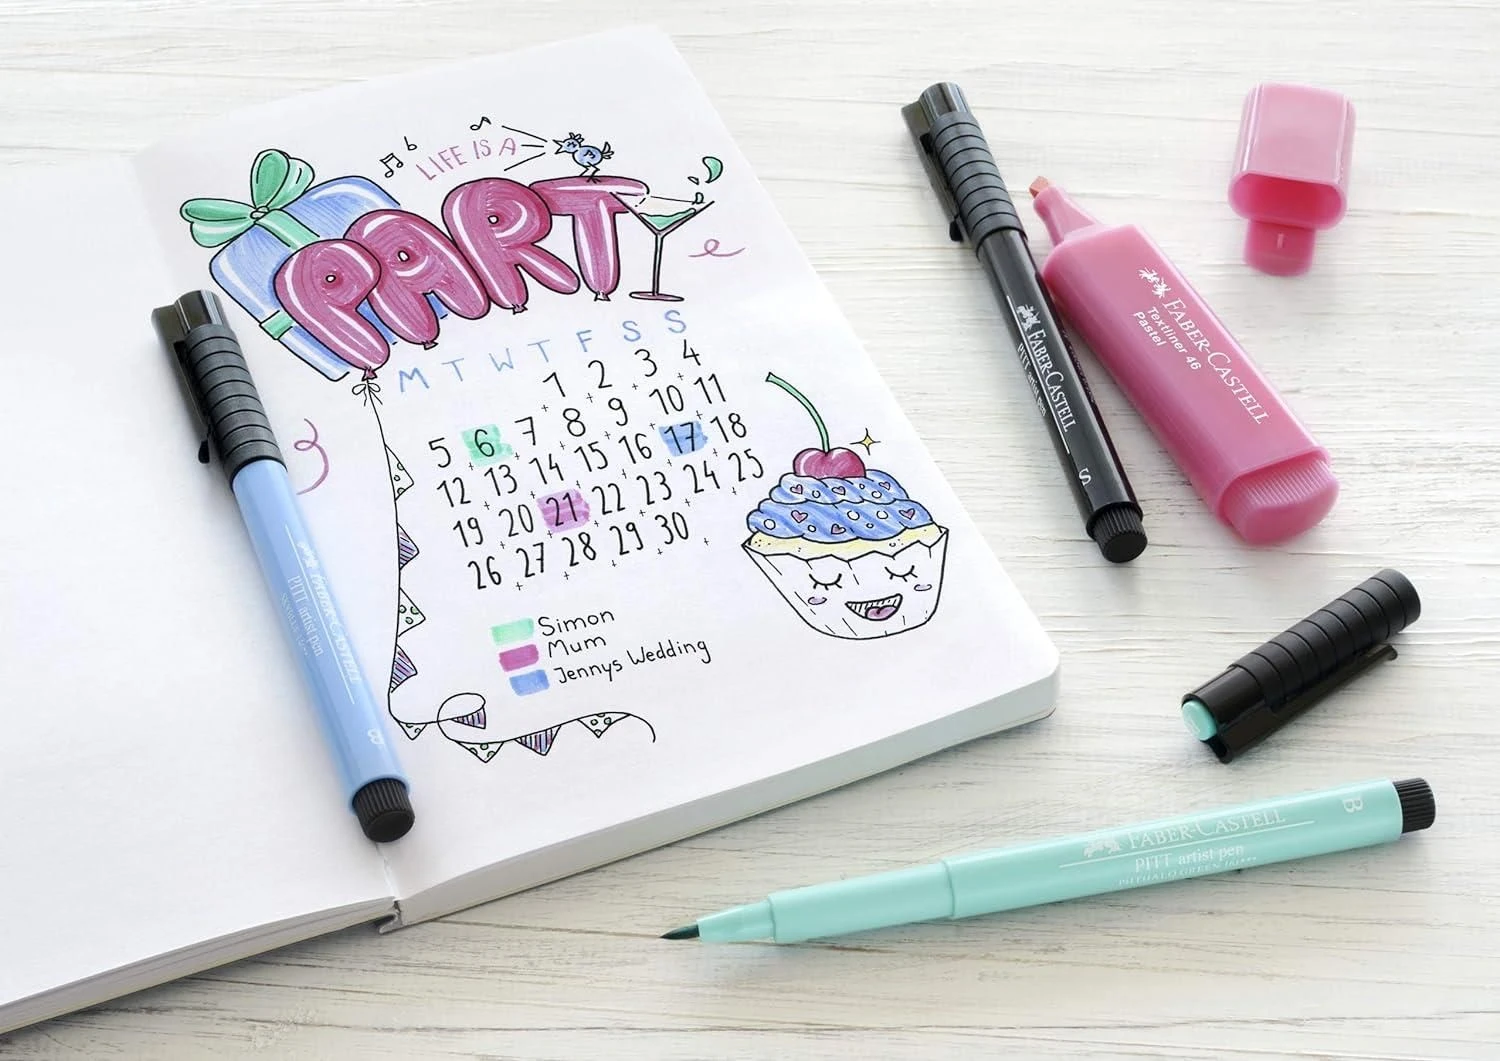 LIFE IS A
PARTY
M T W T F S S
1 2 3 4
5 6 7 8 9 10 11
12 13 14 15 16 17 18
19 20 21 22 23 24 25
26 27 28 29 30
Simon
Mum
Jennys Wedding
FABER-CASTELL
PITT artist pen
B
FABER-CASTELL
PITT artist pen
S
FABER-CASTELL
Textliner 46
Pastel
FABER-CASTELL
PITT artist pen
PHTHALO GREEN
B